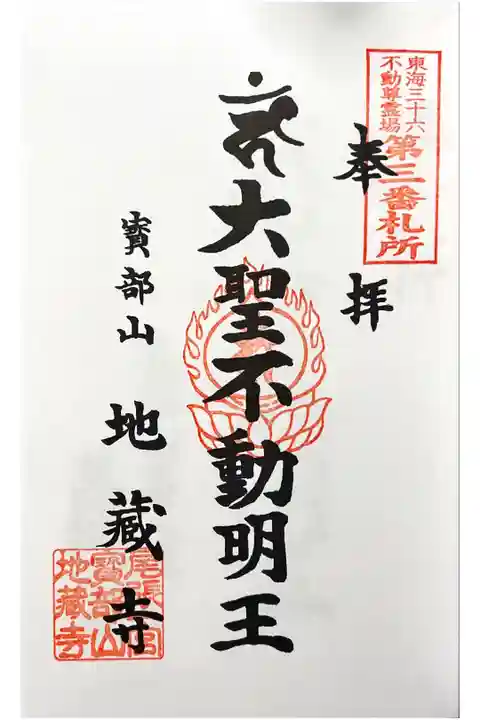 東海三十六
不動尊霊場
第三番札所
奉拝
大聖不動明王
寳部山 地藏寺
尾張宮
寳部山
地藏寺